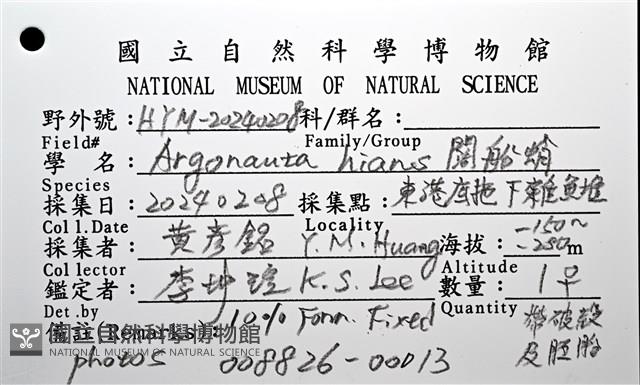 國立自然科學博物館
NATIONAL MUSEUM OF NATURAL SCIENCE
野外號：HYM-20240208 科/群名：
Field# Family/Group
學名：Argonauta hians 闊船蛸
Species
採集日：20240208 採集點：東港底拖下雜魚堆
Col l. Date Locality
採集者：黃彥銘 Y.M. Huang 海拔：-150~-250m
Collector Altitude
鑑定者：李坤瑄 K.S. Lee 數量：1♀
Det .by Quantity
備註(Remarks)：10% Form. Fixed 帶破殼及胚胎
國立自然科學博物館
NATIONAL MUSEUM OF NATURAL SCIENCE
photos 008826-00013